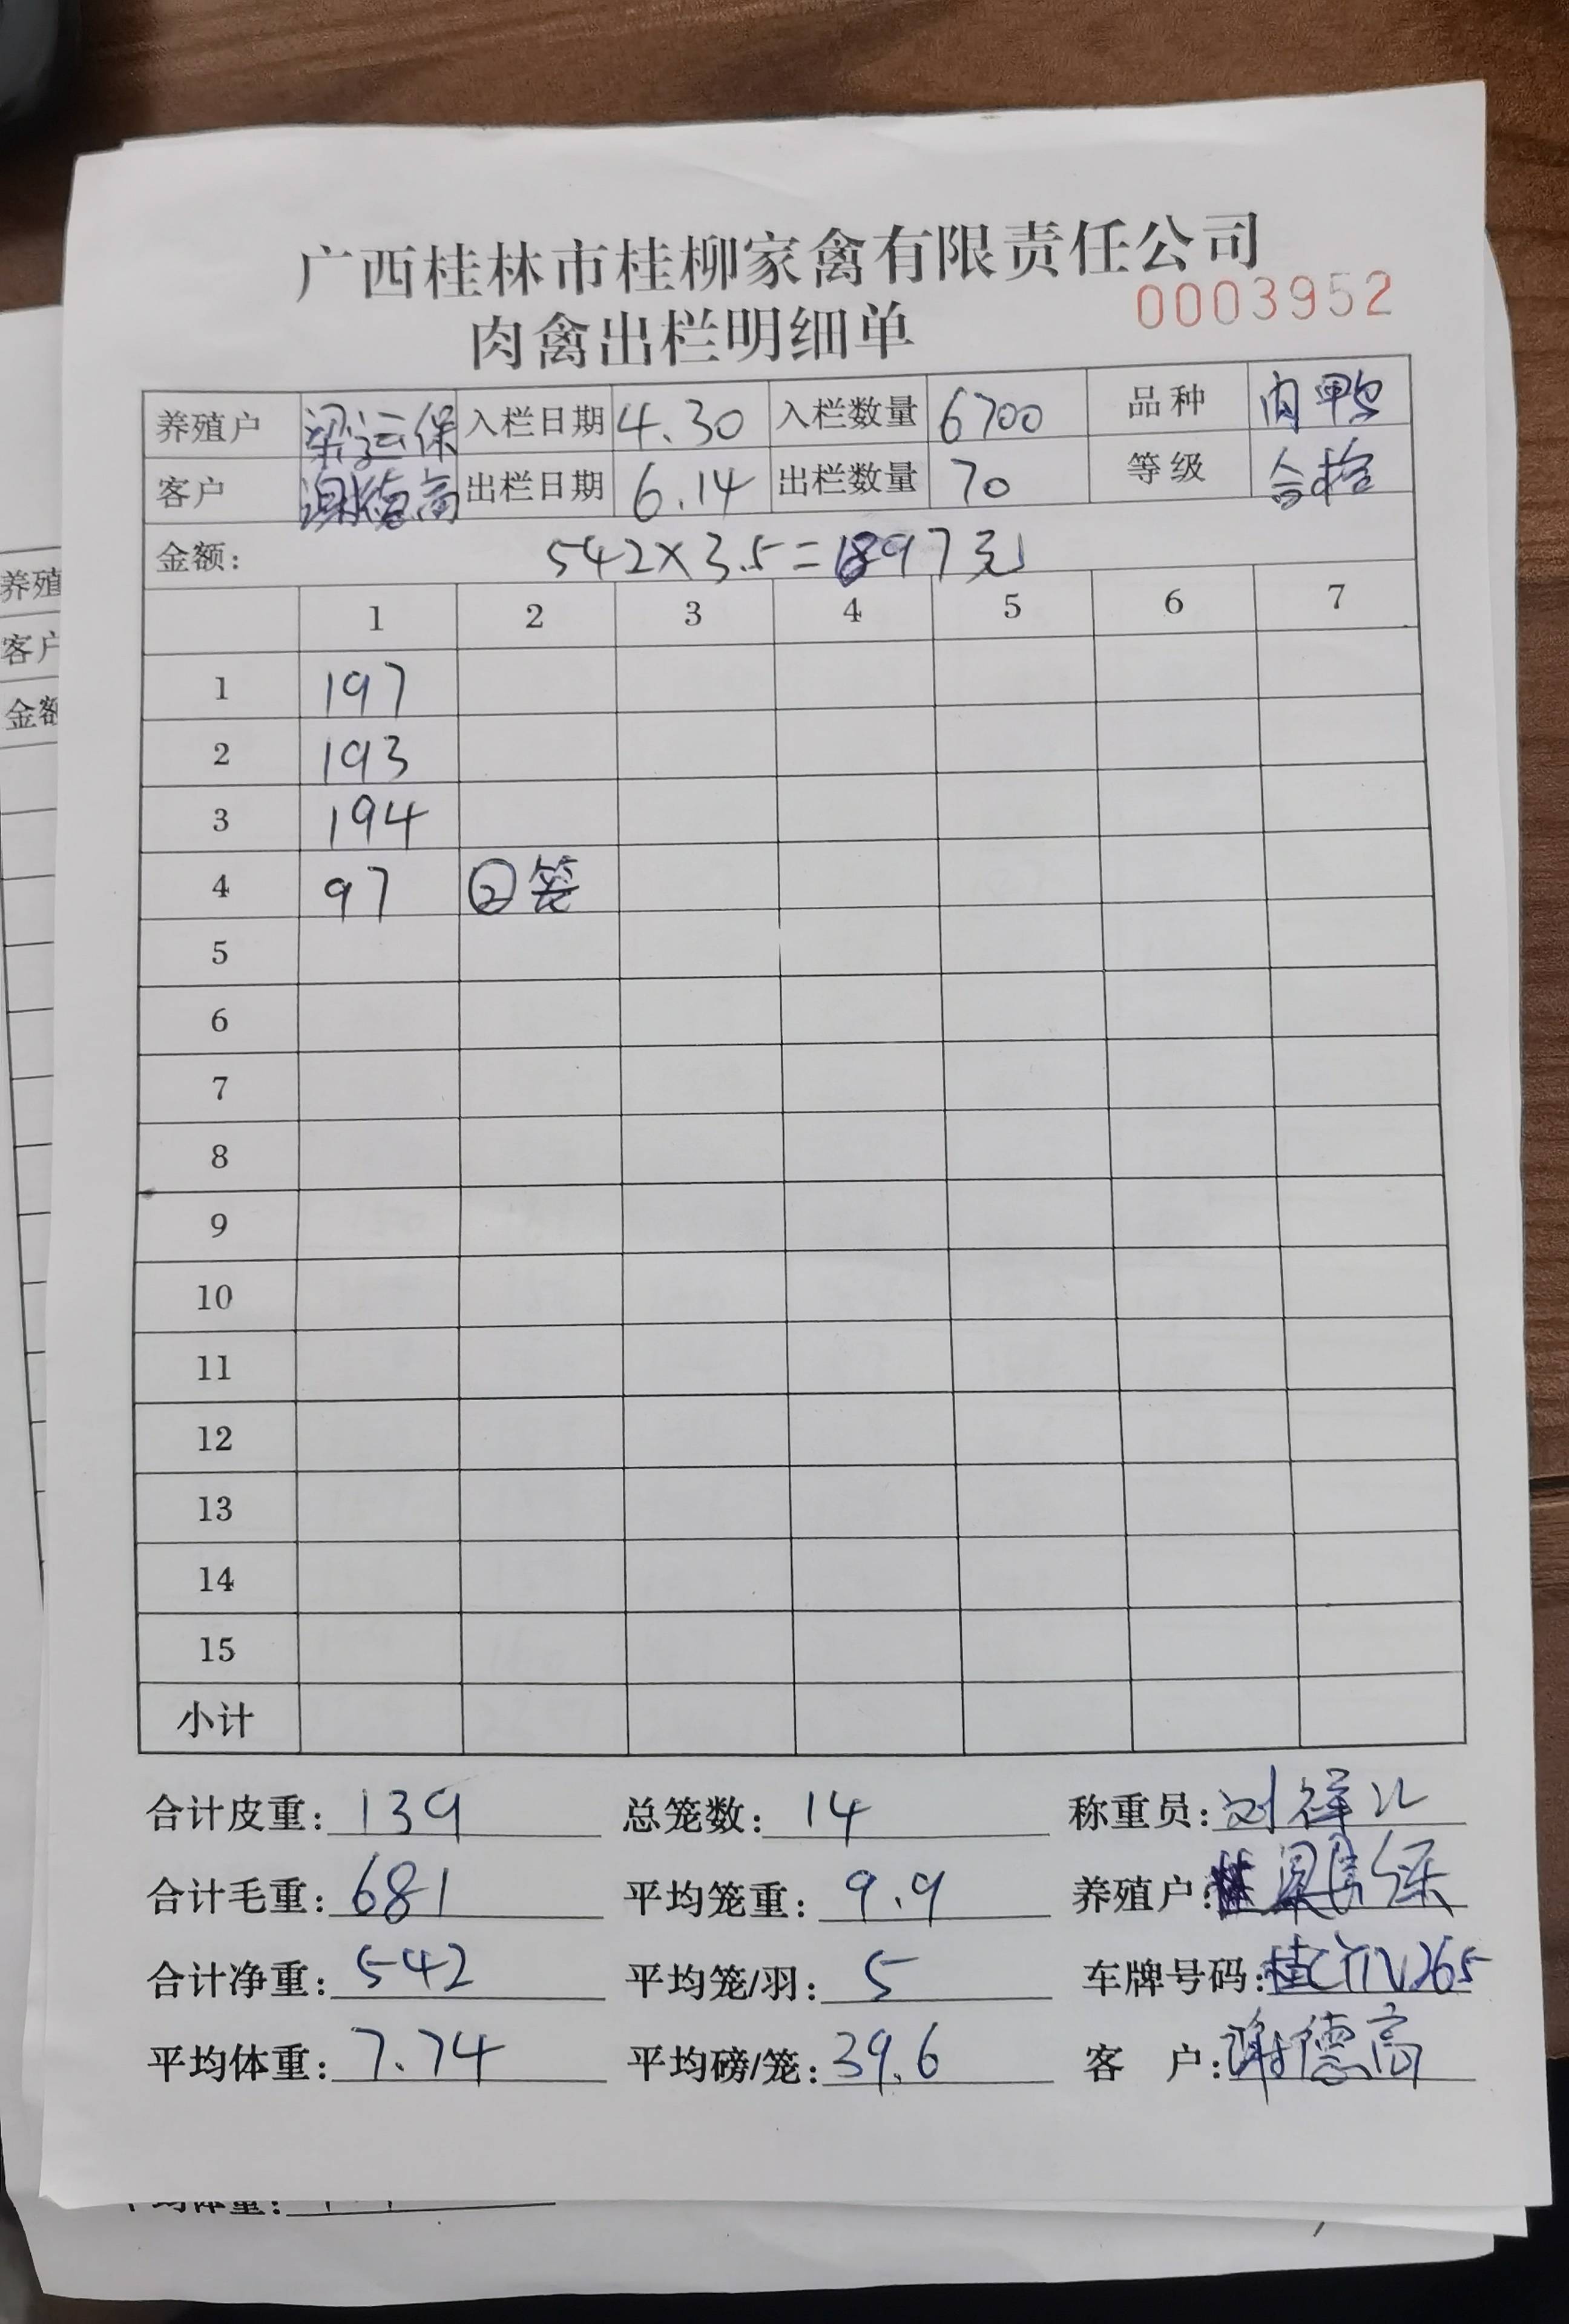 广西桂林市桂柳家禽有限责任公司
0003952
肉禽出栏明细单
养殖户 梁运保 入栏日期 4.30 入栏数量 6700 品种 肉鸭
客户 谢德高 出栏日期 6.14 出栏数量 70 等级 合格
金额: 542×3.5=1897元
1 2 3 4 5 6 7
1 197
2 193
3 194
4 97 ②笼
5
6
7
8
9
10
11
12
13
14
15
小计
合计皮重: 139 总笼数: 14 称重员: 刘祥
合计毛重: 681 平均笼重: 9.9 养殖户:
合计净重: 542 平均笼/羽: 5 车牌号码: 桂
平均体重: 7.74 平均磅/笼: 39.6 客 户: 谢德高
养殖
客户
金额
平均体重: